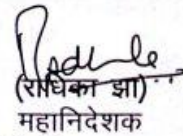 (राधिका झा)
महानिदेशक